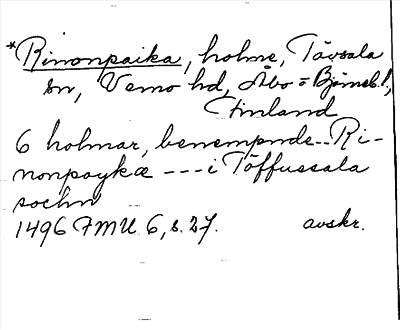 *Rinonpaika, holme, Tävsala
sn, Vemo hd, Åbo = Björneb. l.,
Finland
6 holmar, benempnde -- Ri-
nonpoykæ --- i Töffussala
sochn
1496 FMU 6, s. 27. avskr.